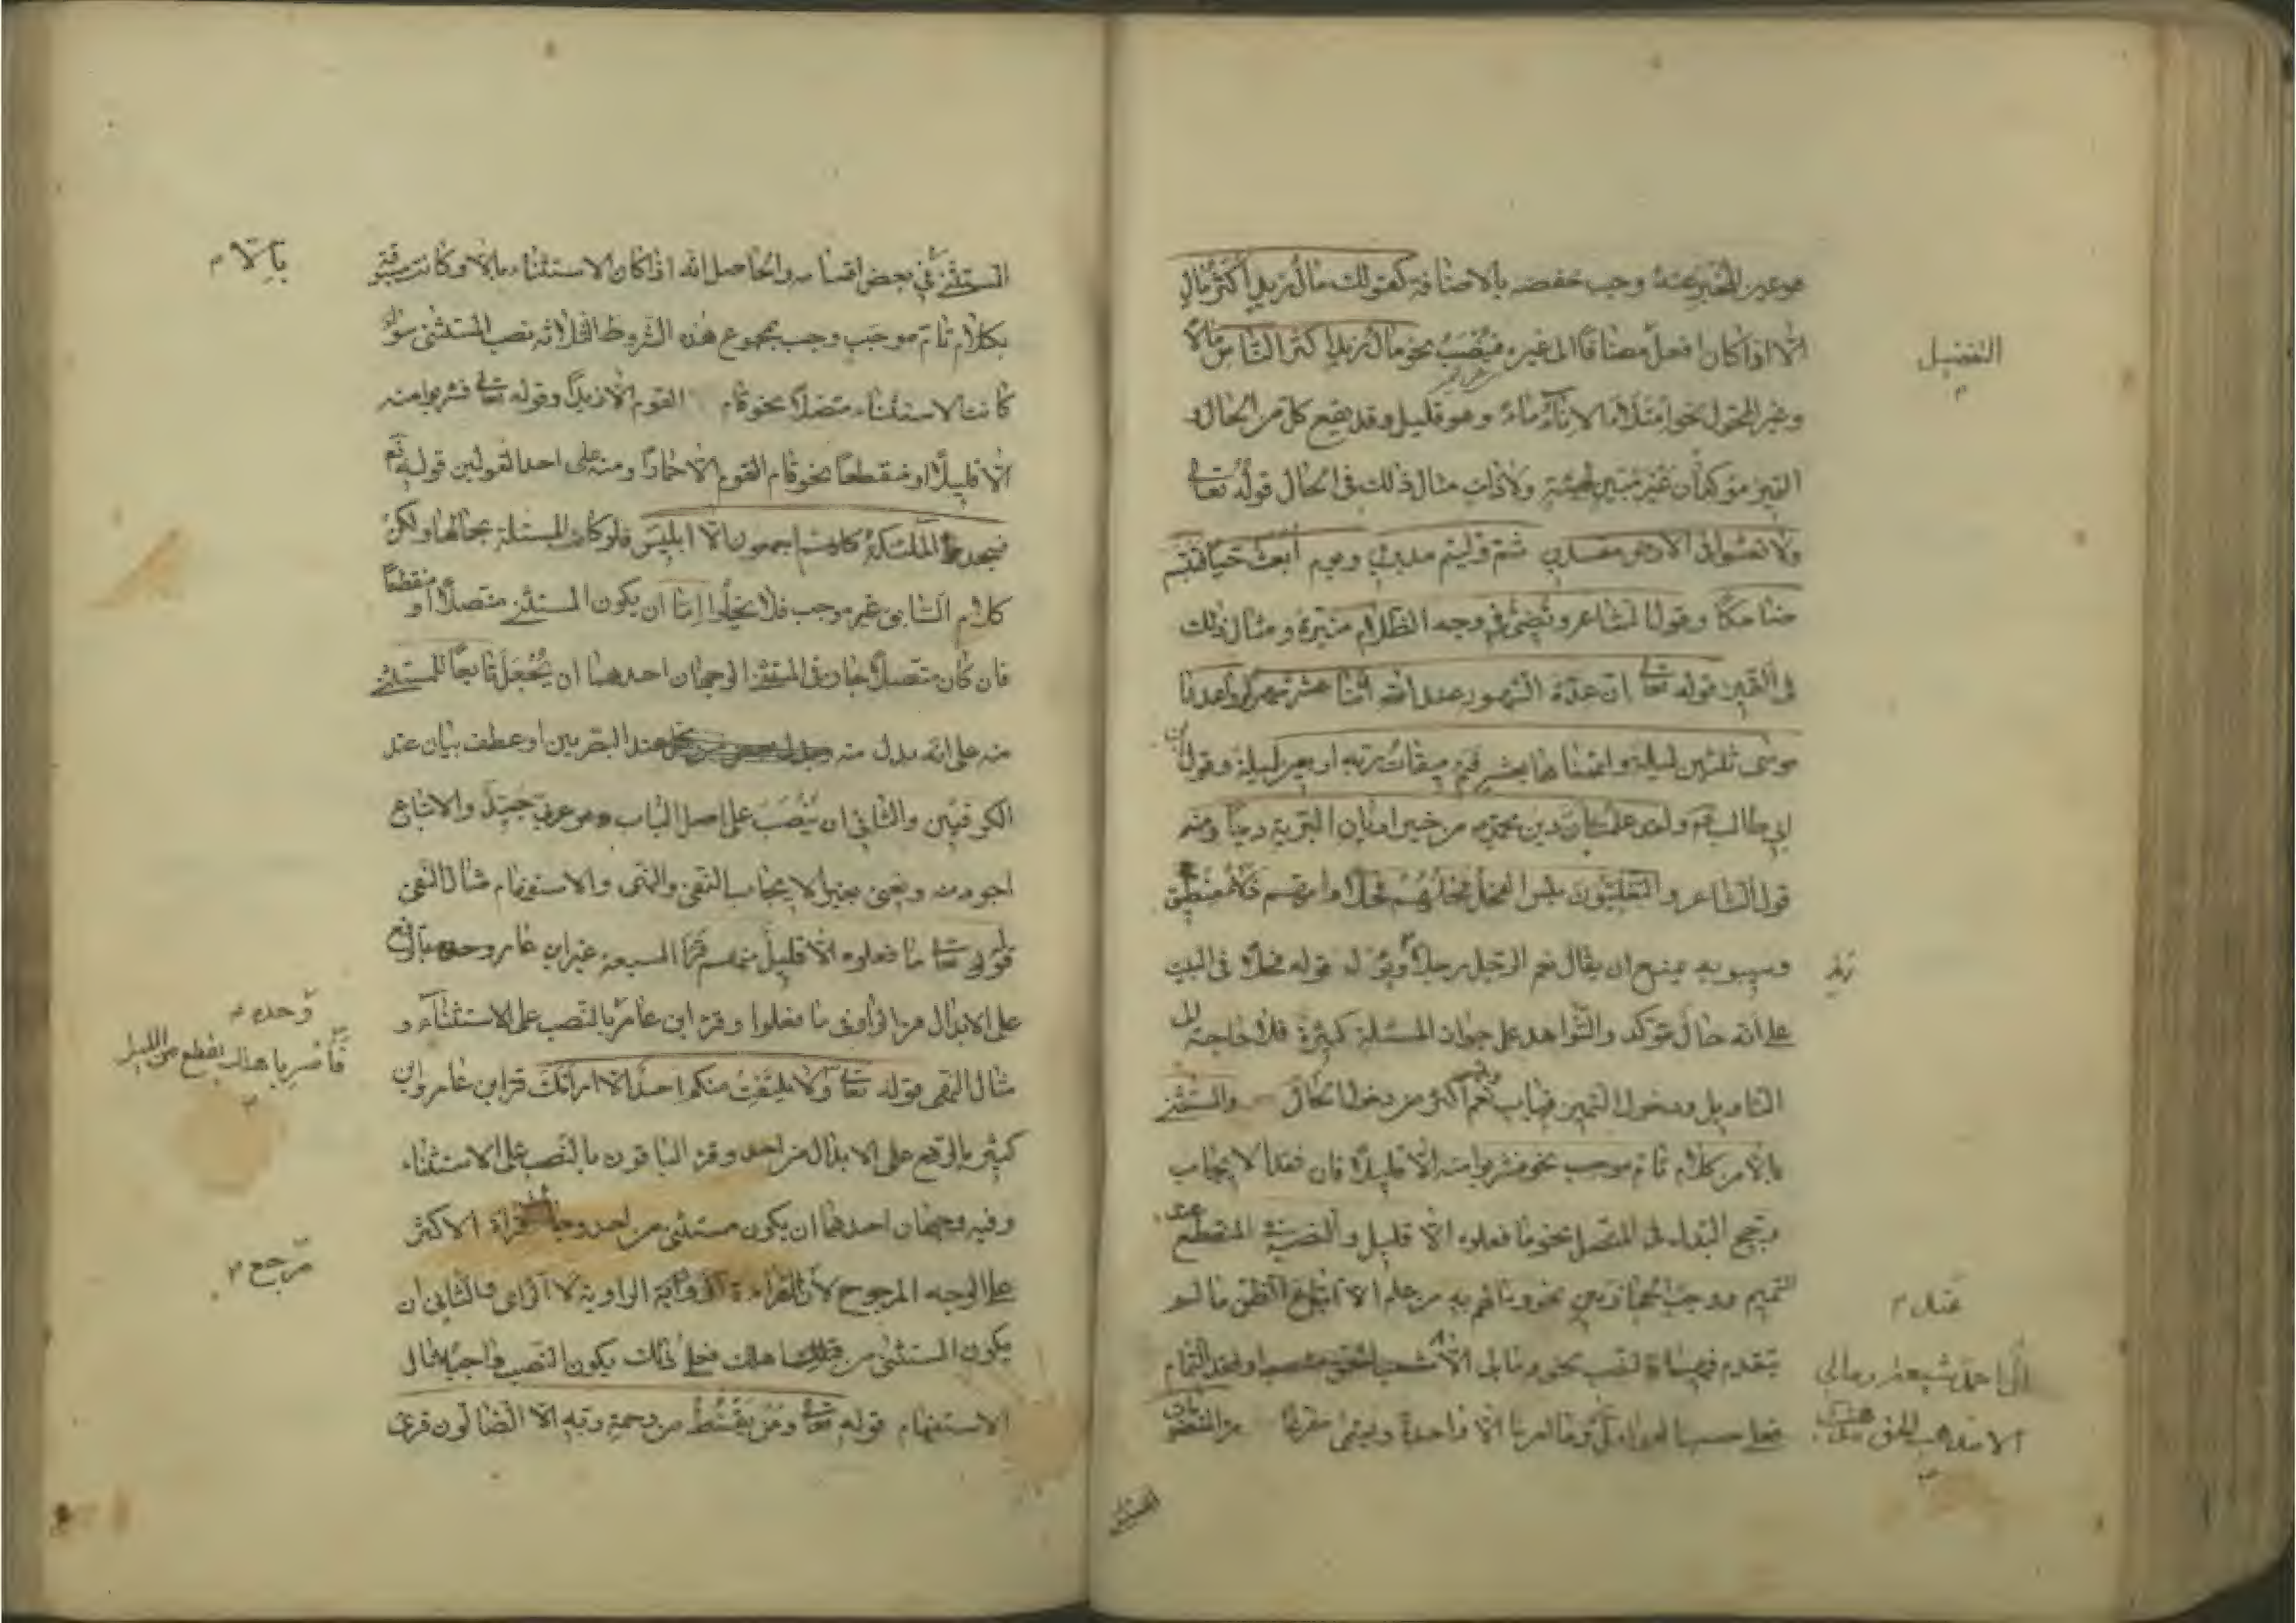 هو عين المخبر عنه وجب خفضه بالاضافة كقولك مال زيد اكثر مال
الا اذا كان افعل مضافا الى غيره فينصب نحو مال زيد اكثر الناس مالا
التفضيل
وغير المحول نحو امتلاء الاناء ماء وهو قليل وقد يقع كل من الحال و
التميز مؤكدا غير مبين لهيئة ولا ذات مثال ذلك فى الحال قوله تعالى
ولا تعثوا فى الارض مفسدين ثم وليتم مدبرين ويوم أبعث حيا فتبسم
ضاحكا وقول الشاعر وتضئ فى وجه الظلام منيرة ومثال ذلك
فى التميز قوله تعالى ان عدة الشهور عند الله اثنا عشر شهرا وواعدنا
موسى ثلثين ليلة واتممناها بعشر فتم ميقات ربه اربعين ليلة وقول
ابى طالب ولقد علمت بان دين محمد من خير اديان البرية دينا ومنه
قول الشاعر والتغلبيون بئس الفحل فحلهم فحلا وامهم زلاء منطيق
وسيبويه يمنع ان يقال نعم الرجل رجلا زيد
على انه حال مؤكد والشواهد على جواز المسئلة كثيرة فلا حاجة الى
التاويل ودخول التميز فى باب نعم اكثر من دخول الحال والمستثنى
بالا من كلام تام موجب نحو فشربوا منه الا قليلا فان فقد الايجاب
ترجح البدل فى المتصل نحو ما فعلوه الا قليل والنصب فى المنقطع عند
تميم ووجب عند الحجازيين نحو وما لهم به من علم الا اتباع الظن ما لم
يتقدم فيهما فالنصب نحو وما لى الا
ال احمد شيعة ومالى
فعلى حسب العوامل وما امرنا الا واحدة ويسمى مفرغا
الا مذهب الحق مذهب
المستثنى
المستثنى فى بعض اقسامه والحاصل انه اذا كان الاستثناء بالا وكانت مسبوقة
بالا
بكلام تام موجب وجب بمجموع هذه الشروط الثلاثة نصب المستثنى سواء
كانت الاستثناء متصلا نحو قام القوم الا زيدا وقوله تعالى فشربوا منه
الا قليلا او منقطعا نحو قام القوم الا حمارا ومنه على احد القولين قوله تع
فسجد الملئكة كلهم اجمعون الا ابليس فلو كانت المسئلة بحالها ولكن
كلام السابق غير موجب فلا يخلوا اما ان يكون المستثنى متصلا او منقطعا
فان كان متصلا جاز فى المستثنى الوجهان احدهما ان يجعل تابعا للمستثنى
منه على انه بدل منه عند البصريين او عطف بيان عند
الكوفيين والثانى ان ينصب على اصل الباب وهو عربى جيد والاتباع
اجود منه ونعنى بغير الايجاب النفى والنهى والاستفهام مثال النفى
قوله تعالى ما فعلوه الا قليل منهم قرأ السبعة غير ابن عامر وحده بالرفع
على الابدال من الواو فى ما فعلوا وقرء ابن عامر بالنصب على الاستثناء و
وحده
مثال النهى قوله تعالى ولا يلتفت منكم احد الا امراتك قرء ابن عامر وابن
فأسر باهلك بقطع من الليل
كثير بالرفع على الابدال من احد وقرء الباقون بالنصب على الاستثناء
وفيه وجهان احدهما ان يكون مستثنى من احد وجاءت قراءة الاكثر
على الوجه المرجوح لان القراءة الرواية لا الراى والثانى ان
مرجع
يكون المستثنى من اهلك فعلى ذلك يكون النصب واجبا مثال
الاستفهام قوله تعالى ومن يقنط من رحمة ربه الا الضالون قرئ